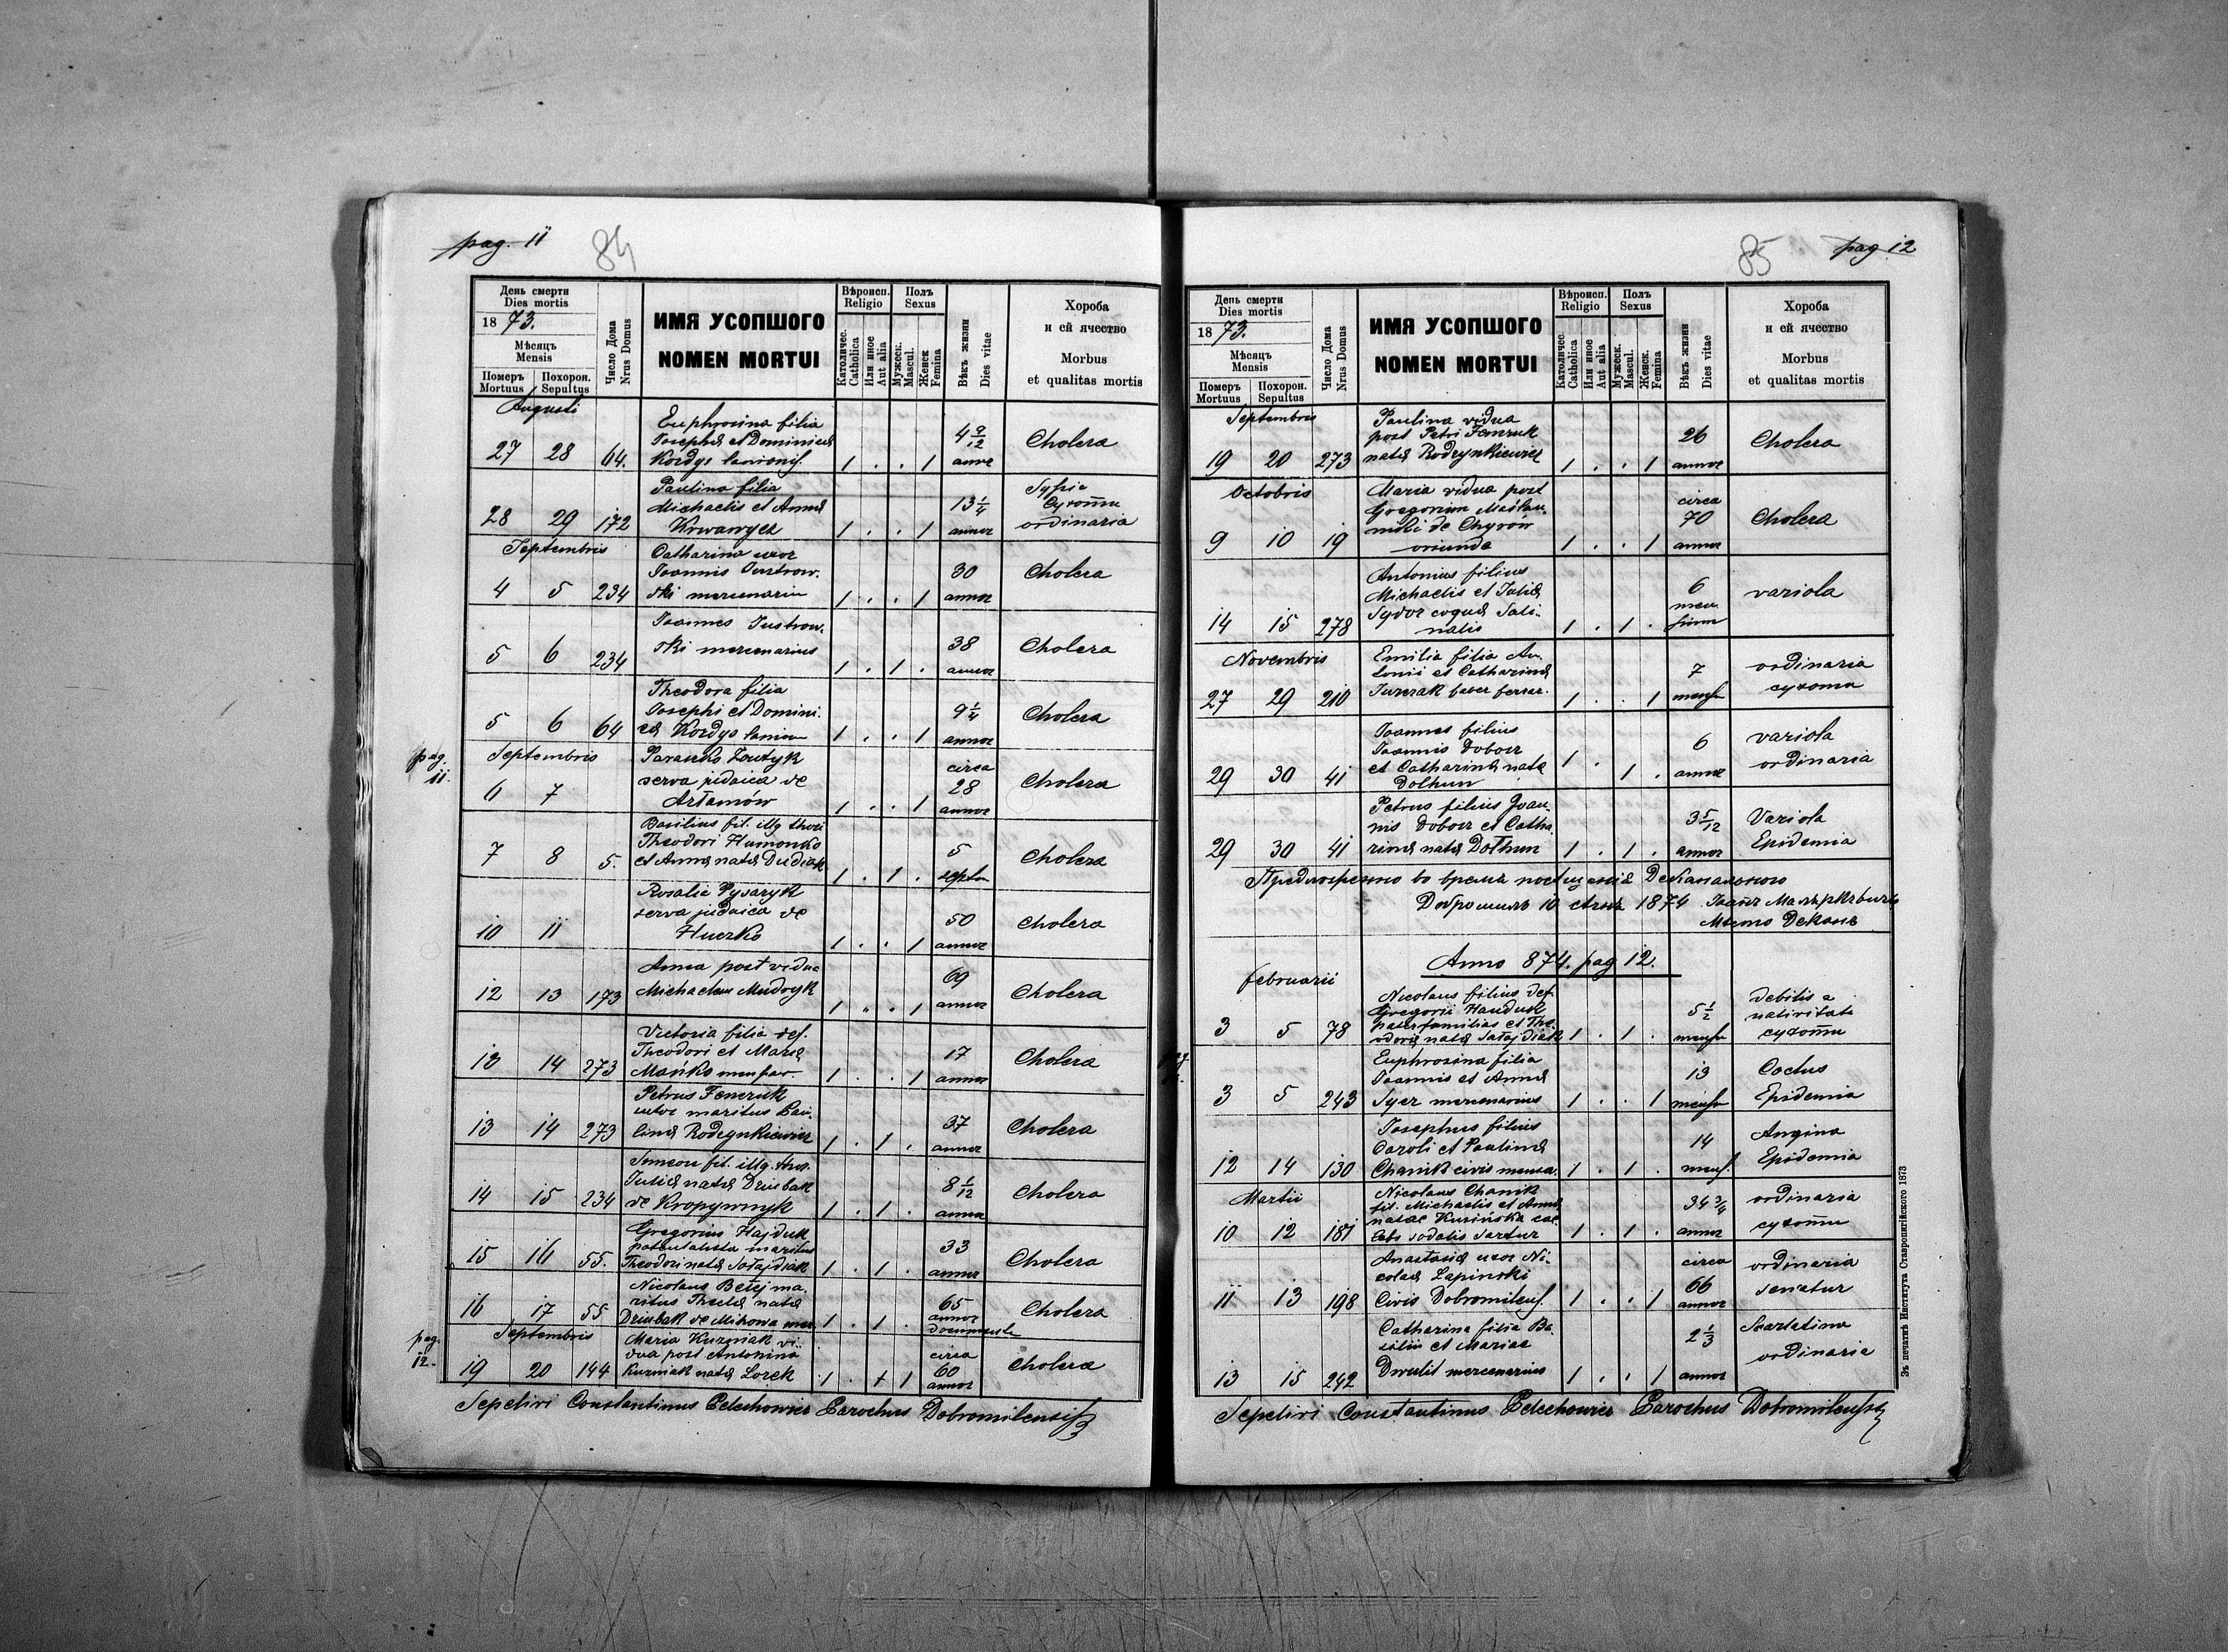 pag. 11
84
День смерти
Dies mortis
1873.
Мѣсяцъ
Mensis
Померъ
Mortuus
Похорон.
Sepultus
Число Дома
Nrus Domus
ИМЯ УСОПШОГО
NOMEN MORTUI
Вѣроисп.
Religio
Католичес.
Catholica
Или иное
Aut alia
Полъ
Sexus
Мужеск.
Mascul.
Женск
Femina
Вѣкъ жизни
Dies vitae
Хороба
и ей ячество
Morbus
et qualitas mortis
Augusti
27 28 64.
Euphrosina filia
Josephi et Dominicæ
Kordys
1 . . 1
4 9/12
Cholera
28 29 172
Paulina filia
Michaelis et Annæ
Krwawycz
1 . . 1
13 1/4
annor
ordinaria
Septembris
4 5 234
Catharina uxor
Joannis Justrow-
ski mercenarii
1 . . 1
30
annor
Cholera
5 6 234
Joannes Justrow-
ski mercenarius
1 . 1 .
38
annor
Cholera
5 6 64
Theodora filia
Josephi et Domini-
cæ Kordys
1 . . 1
9 1/4
annor
Cholera
pag.
11.
Septembris
6 7
serva judaica de
Arłamów
1 . . 1
circa
28
annor
Cholera
7 8 5.
Basilius fil. illg thori
Theodori Humonko
et Annæ natæ Dudiak
1 . 1 .
5
septim
Cholera
10 11
Rosalia Pysaryk
serva judaica de
Huczko
1 . . 1
50
annor
Cholera
12 13 173
Anna post vidua
Michaelem Mudryk
1 . . 1
69
annor
Cholera
13 14 273
Victoria filia def.
Theodori et Mariæ
Mańko
1 . . 1
17
annor
Cholera
13 14 273
Petrus Fenczuk
sutor maritus Pau-
linæ Rodzynkiewicz
1 . 1 .
37
annor
Cholera
14 15 234
Simeon fil. illg. thor.
Juliæ natæ Dziubak
de Kropywnyk
1 . 1 .
8 1/12
annor
Cholera
15 16 55.
Gregorius Hajduk
maritus
Theodori natæ Sołajdiak
1 . 1 .
33
annor
Cholera
16 17 55
Nicolaus Bełej ma-
ritus Theclæ natæ
Dziubak de Mihowa
1 . 1 .
65
annor
Cholera
pag.
12.
Septembris
19 20 144
Maria Kuzmiak vi-
dua post Antonina
Kuzmiak natæ Lorek
1 . + 1
circa
60
annor
Cholera
Sepelivi Constantinus Pelechowicz Parochus Dobromilensis
85
pag 12
День смерти
Dies mortis
1873.
Мѣсяцъ
Mensis
Померъ
Mortuus
Похорон.
Sepultus
Число Дома
Nrus Domus
ИМЯ УСОПШОГО
NOMEN MORTUI
Вѣроисп.
Religio
Католичес.
Catholica
Или иное
Aut alia
Полъ
Sexus
Мужеск.
Mascul.
Женск.
Femina
Вѣкъ жизни
Dies vitae
Хороба
и ей ячество
Morbus
et qualitas mortis
Septembris
19 20 273
Paulina vidua
post Petri Fenczuk
natæ Rodzynkiewicz
1 . . 1
26
annor
Cholera
Octobris
9 10 19
Maria vidua post
Gregorium
de Chyrów
oriunda
1 . . 1
circa
70
annor
Cholera
14 15 278
Antonius filius
Michaelis et Juliæ
Sydor coquæ Sali-
nalis
1 . 1 .
6
men-
sium
variola
Novembris
27 29 210
Emilia filia An-
tonii et Catharinæ
Jurczak faber ferrar.
1 . . 1
7
mensi
ordinaria
29 30 41
Joannes filius
Joannis Dobosz
et Catharinæ natæ
Dołhun
1 . 1 .
6
annor
variola
ordinaria
29 30 41
Petrus filius Joan-
nis Dobosz et Catha-
rinæ natæ Dołhun
1 . 1 .
3 5/12
annor
Variola
Epidemia
во время
Добромиль 10 1874
Anno 874. pag 12.
februarii
3 5 78
Nicolaus filius def.
Gregorii Hauduk
paterfamilias et The-
odoræ natæ Sołajdiak
1 . 1 .
5 1/2
mensi
debilis a
nativitate
3 5 243
Euphrosina filia
Joannis et Annæ
Sycz mercenarius
1 . . 1
13
mensi
Epidemia
12 14 130
Josephus filius
Caroli et Paulinæ
Chanik civis
1 . 1 .
14
mens.
Angina
Epidemia
Martii
10 12 181
Nicolaus Chanik
fil. Michaelis et Annæ
natae Kusińska cae-
lebs sodalis sartor
1 . 1 .
34 3/4
annor
ordinaria
11 13 198
Anastasia uxor Ni-
colai Lapinski
Civis Dobromilens.
1 . . 1
circa
66
annor
ordinaria
13 15 242
Catharina filia Ba-
silii et Mariae
mercenarius
1 . . 1
2 1/3
annor
Scarlatina
ordinaria
Sepelivi Constantinus Pelechowicz Parochus Dobromilensis
Зъ печатнѣ Института Ставропигійского 1873